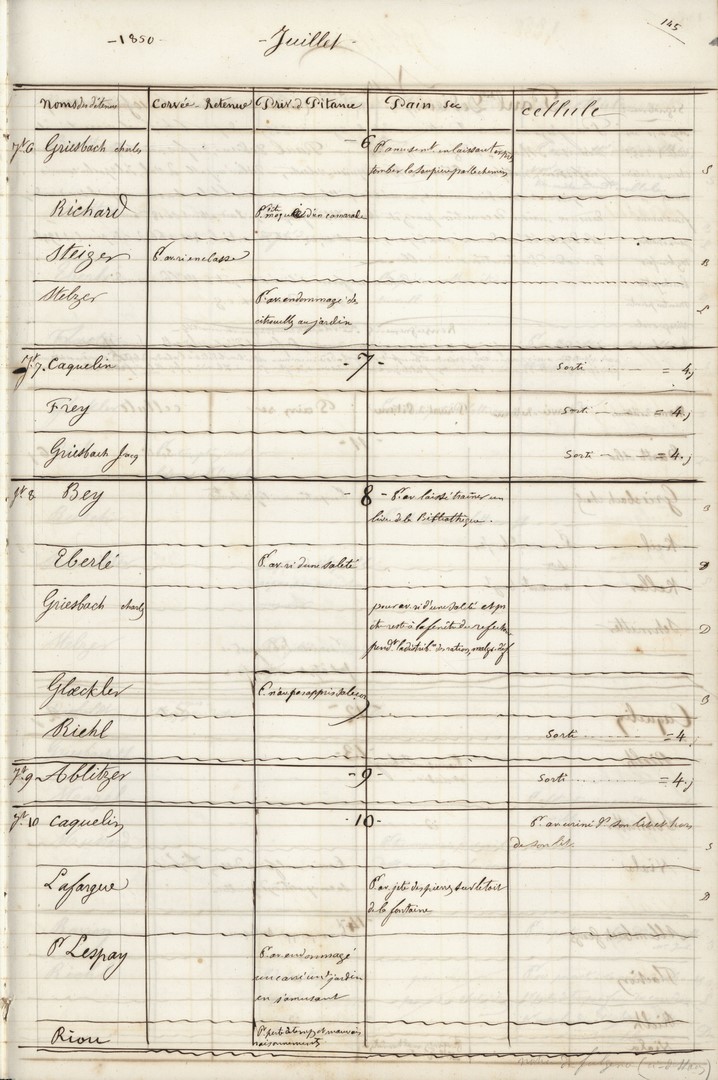 145
-1850- -Juillet-
Noms des détenus Corvée-Retenue Priv. d Pitance Pain sec cellule
Jt. 6 Griesbach charles 6 Pr. amusent en laissant
tomber la soupière par le chemin S
Richard d'un camarade
Steiger Pr. av. ri en classe B
Stelzer Pr. av. endommagé de
citrouilles au jardin
Jt. 7. Caquelin -7- Sorti = 4 j
Frey Sorti = 4 j
Griesbach Jacq Sorti = 4 j
Jt 8 Bey - 8 - Pr. av laissé traîner un
livre de la Bibliothèque. B
Eberlé Pr. av. ri d'une saleté D
Griesbach charles pour av. ri d'une saleté et pr
êt. resté à la fenêt. du refect.
pendt. la distrib.on des rations, malgré D
Glœckler P. n'av. pas appris sa leçon B
Riehl Sorti = 4
Jt. 9 Ablitzer -9- Sorti = 4 j
Jt 10 Caquelin -10- Pr. av uriné ds son lit et hors
de son lit. S
Lafargue Pr. av. jeté des pierres sur le toit
de la fontaine D
Pr Lespay Pr. av endommagé
un carré au jardin
en s'amusant
Riou Pr. perte de temps et mauvais
raisonnements